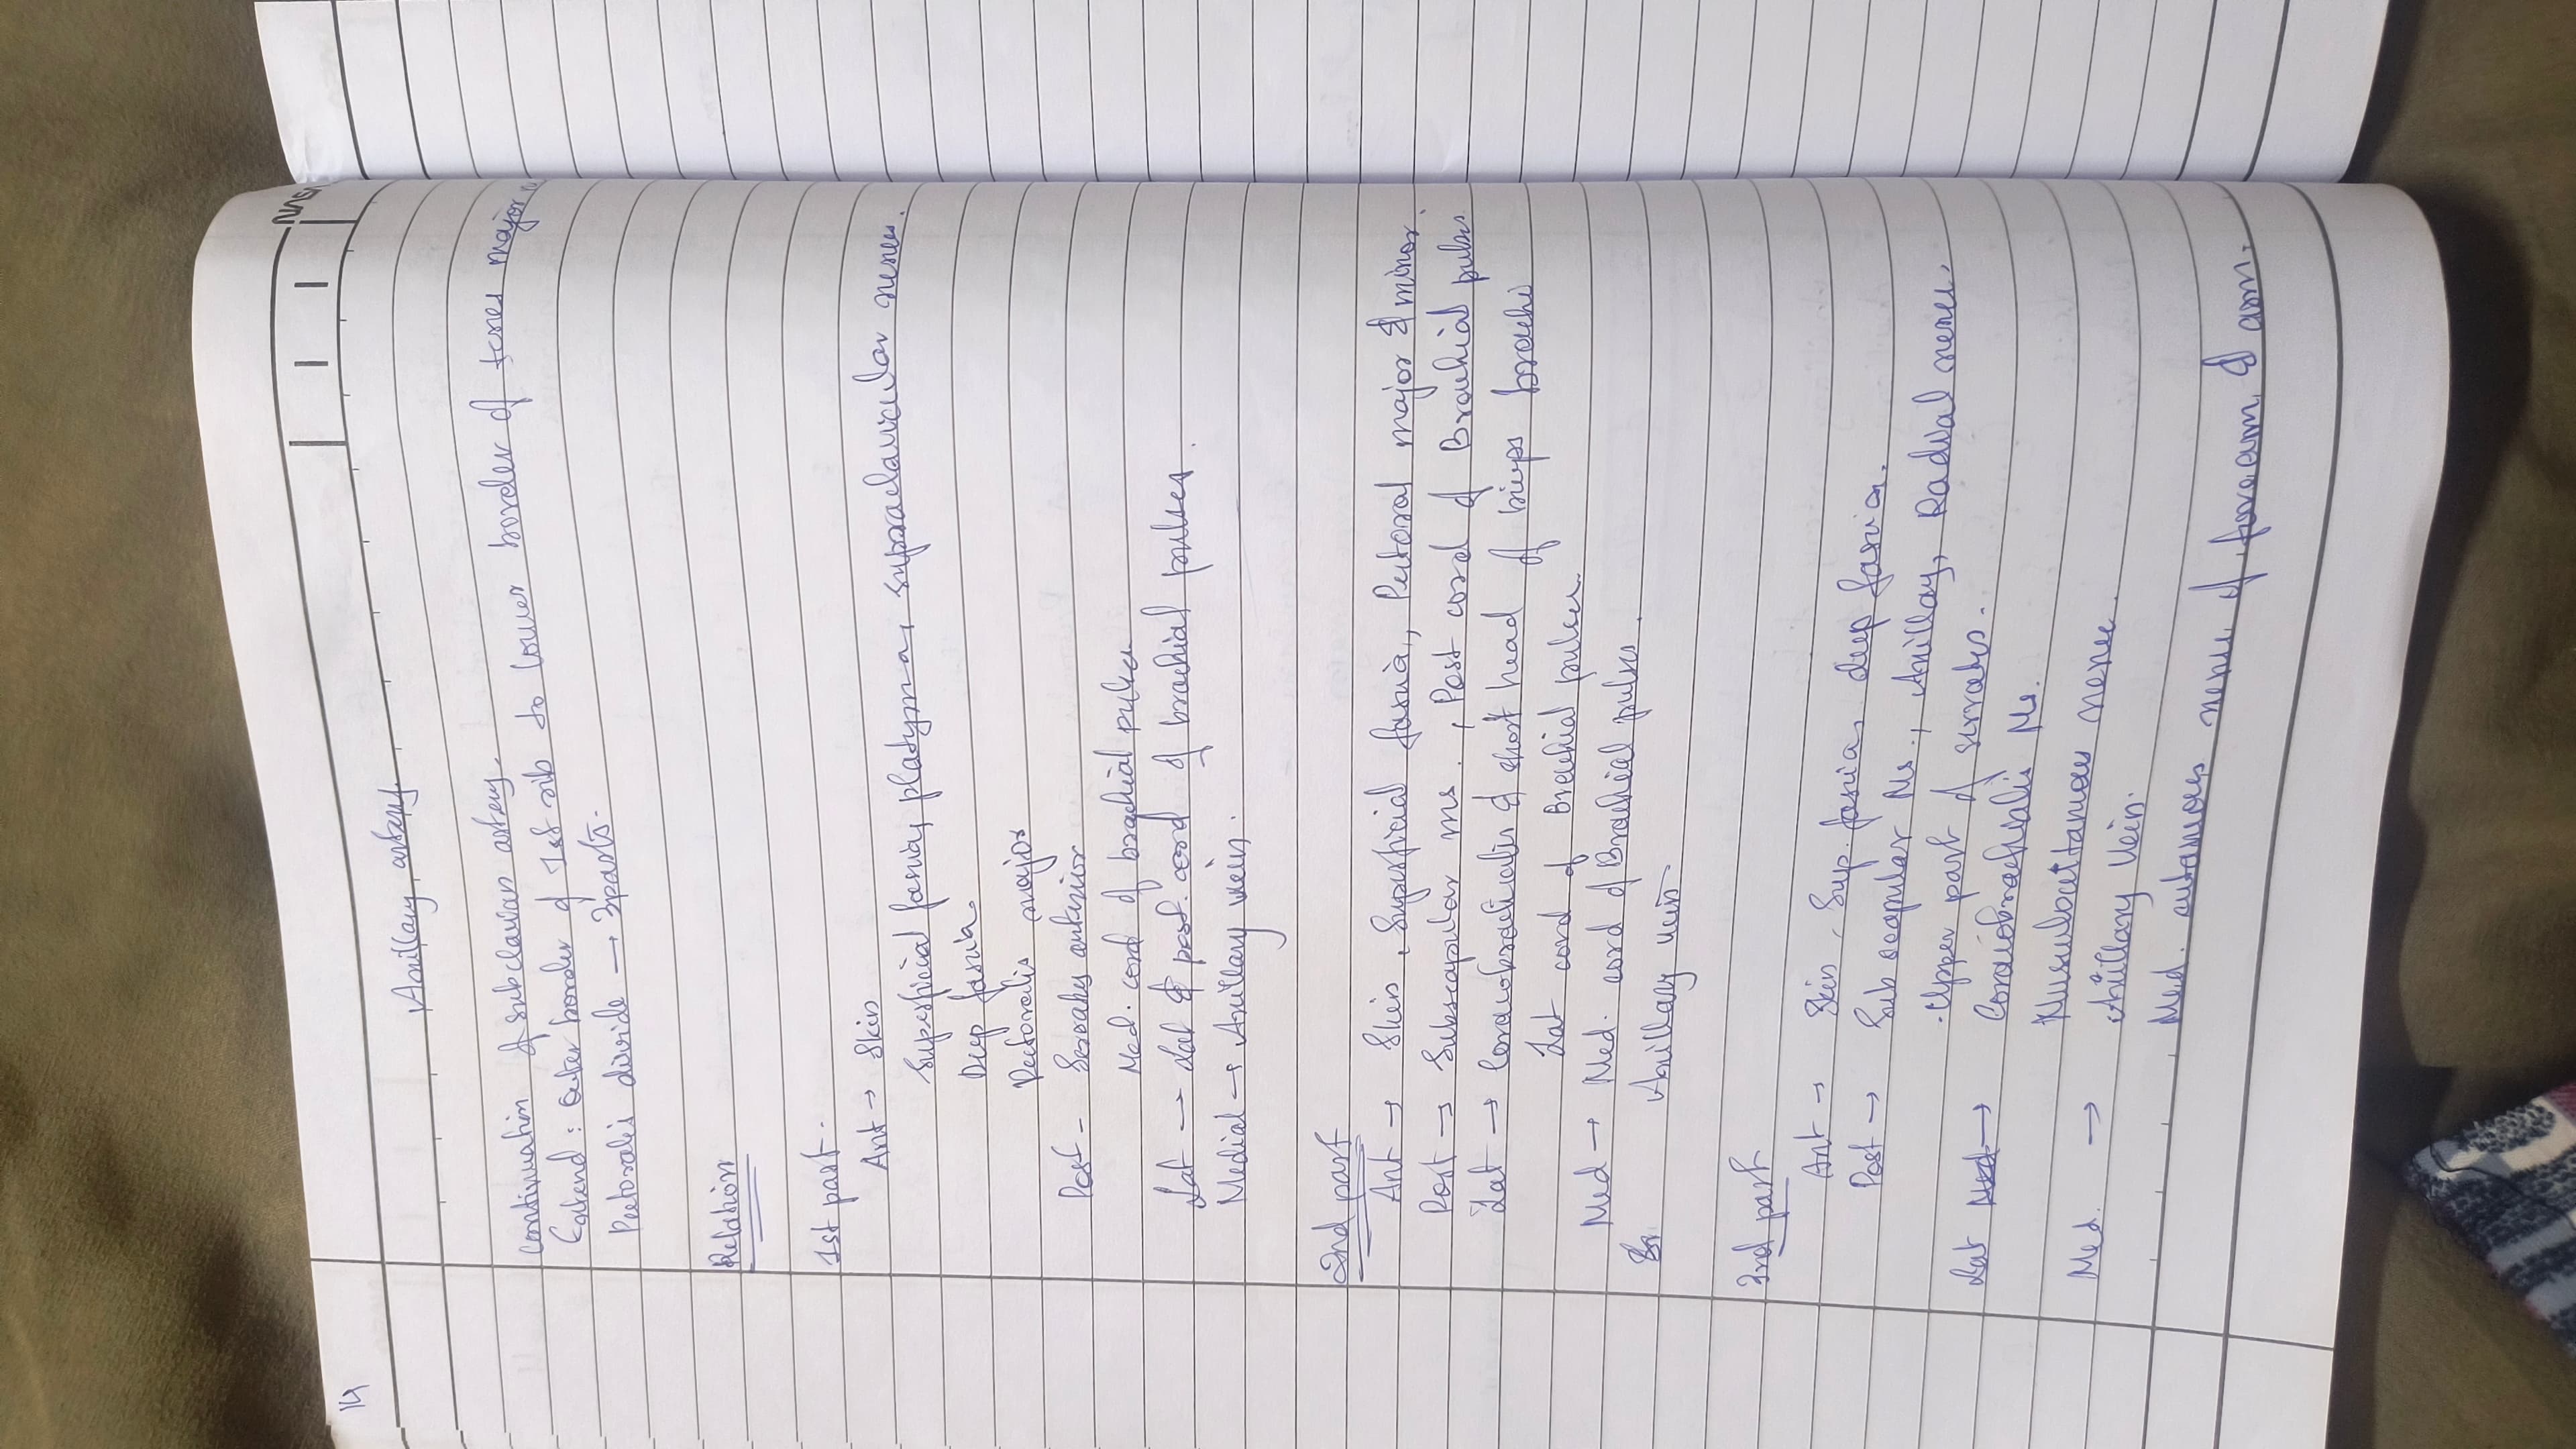 14
Axillary artery
Continuation of subclavian artery.
Extend: outer border of 1st rib to lower border of teres major
Pectoralis divide → 3parts.
Relation
1st part.
Ant → Skin
Superficial fascia, platysma, supraclavicular nerves.
Deep fascia
Pectoralis major
Post - Serratus anterior
Med. cord of brachial
Lat → Lat & post. cord of brachial
Medial → Axillary vein.
2nd part
Ant → Skin, Superficial fascia, Pectoral major & minor.
Post → Subscapular ms., Post cord of Brachial
Lat → Coracobrachialis & short head of biceps brachii
Lat cord of Brachial
Med → Med. cord of Brachial
Axillary vein
3rd part
Ant → Skin, Sup. fascia, deep fascia.
Post → Subscapular Ms., Axillary, Radial nerve.
Upper part of
Lat → Coracobrachialis Ms.
Musculocutaneous nerve.
Med. → Axillary Vein.
Med. nerve of forearm & arm.